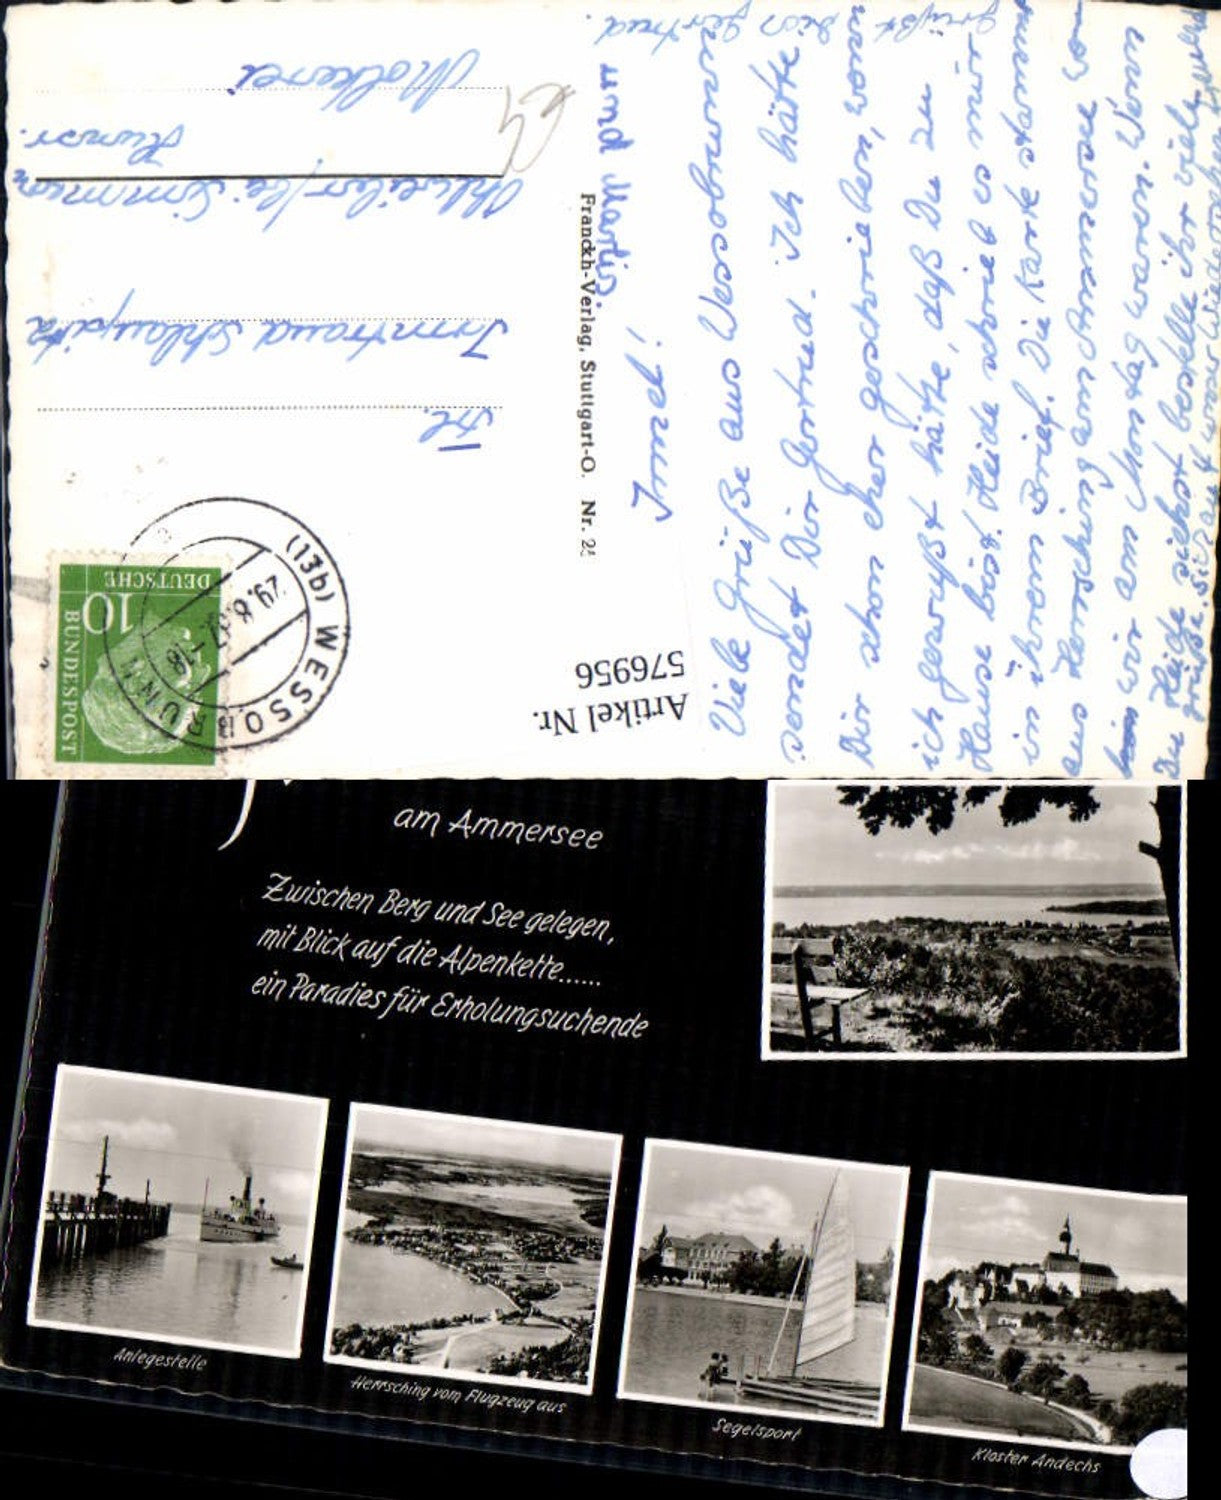 Irmel!
Viele Grüße aus Wessobrunn
sendet Dir Gertrud. Ich hätte
Dir schon eher geschrieben, wenn
ich gewußt hätte, daß Du zu
Hause bist. Heide schrieb es mir
in ihrem Brief. Die Karte stammt
aus Herrsching am Ammersee wo
wir am Montag waren. Wenn
Du Heide siehst bestelle ihr viele
Grüße.
Grüßt Dich Gertrud.
und Martis
Franckh-Verlag, Stuttgart-O. Nr. 2
Frl.
Irmtraud Schlaupitz
Ohlweiler/bei Simmern
Hunsr.
Molkerei
DEUTSCHE
BUNDESPOST
10
(13b) WESSOBRUNN
29.8.57-18
Artikel Nr.
576956
am Ammersee
Zwischen Berg und See gelegen,
mit Blick auf die Alpenkette......
ein Paradies für Erholungsuchende
Anlegestelle
Herrsching vom Flugzeug aus
Segelsport
Kloster Andechs